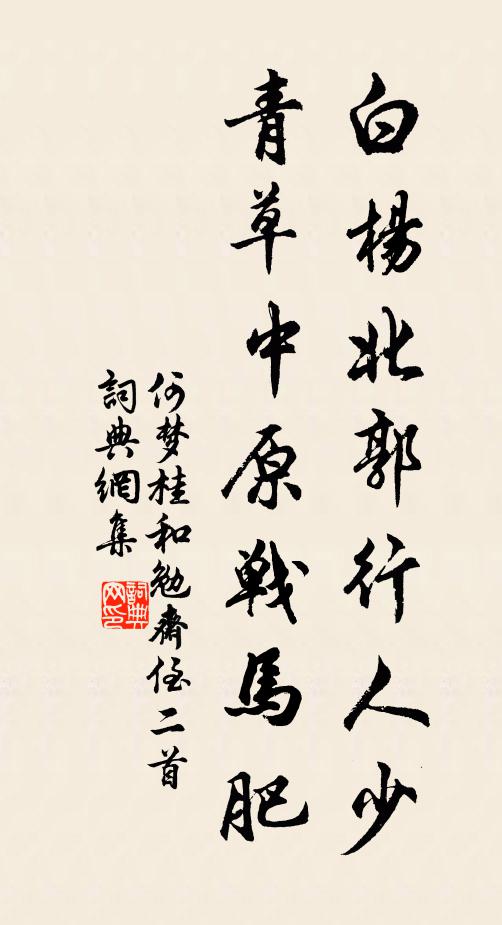 白楊北郭行人少
青草中原戦馬肥
何梦桂和勉齋侄二首
詞典網集
詞典网印